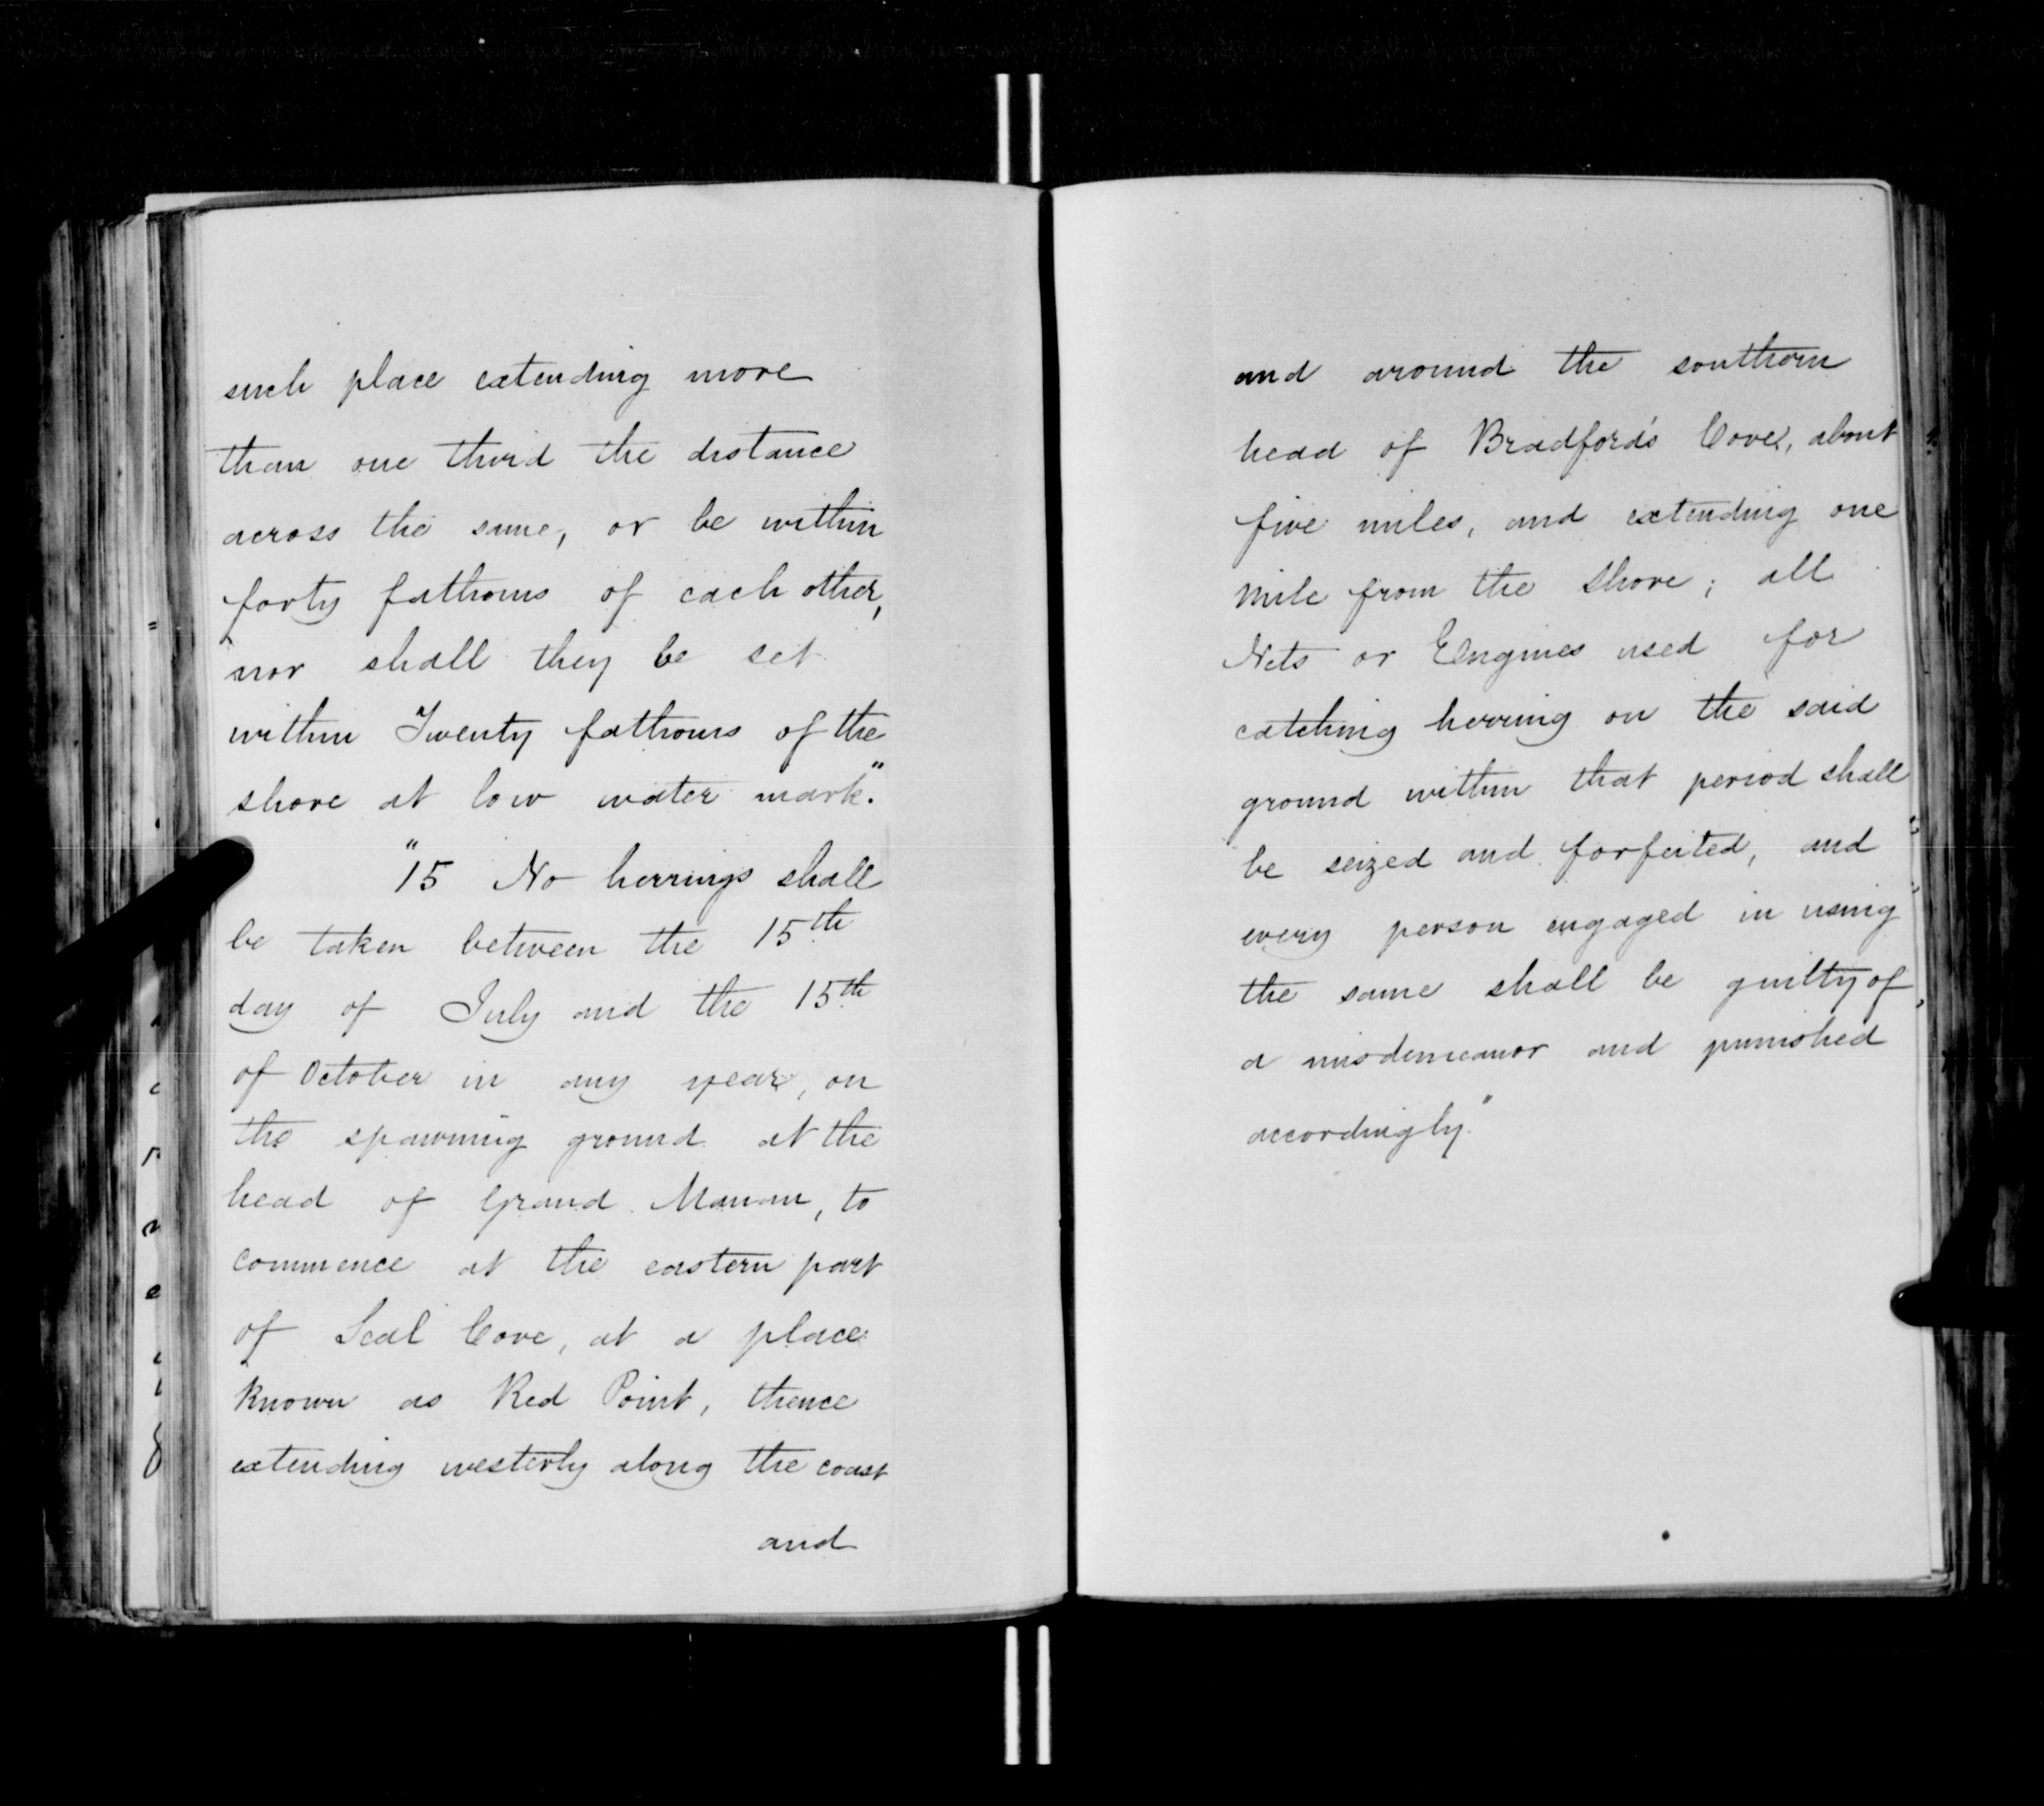 such place extending more
than one third the distance
across the same, or be within
forty fathoms of each other,
nor shall they be set
within Twenty fathoms of the
shore at low water mark."
"15 No herrings shall
be taken between the 15th
day of July and the 15th
of October in any year, on
the spawning ground at the
head of Grand Manan, to
commence at the eastern part
of Seal Cove, at a place
known as Red Point, thence
extending westerly along the coast
and
and around the southern
head of Bradford's Cove, about
five miles, and extending one
mile from the shore; all
Nets or Engines used for
catching herring on the said
ground within that period shall
be seized and forfeited, and
every person engaged in using
the same shall be guilty of
a misdemeanor and punished
accordingly."